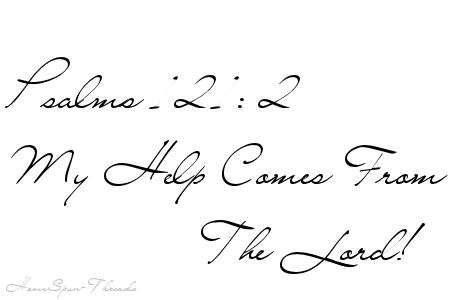 Psalms 121:2
My Help Comes From
The Lord!
HomeSpun Threads